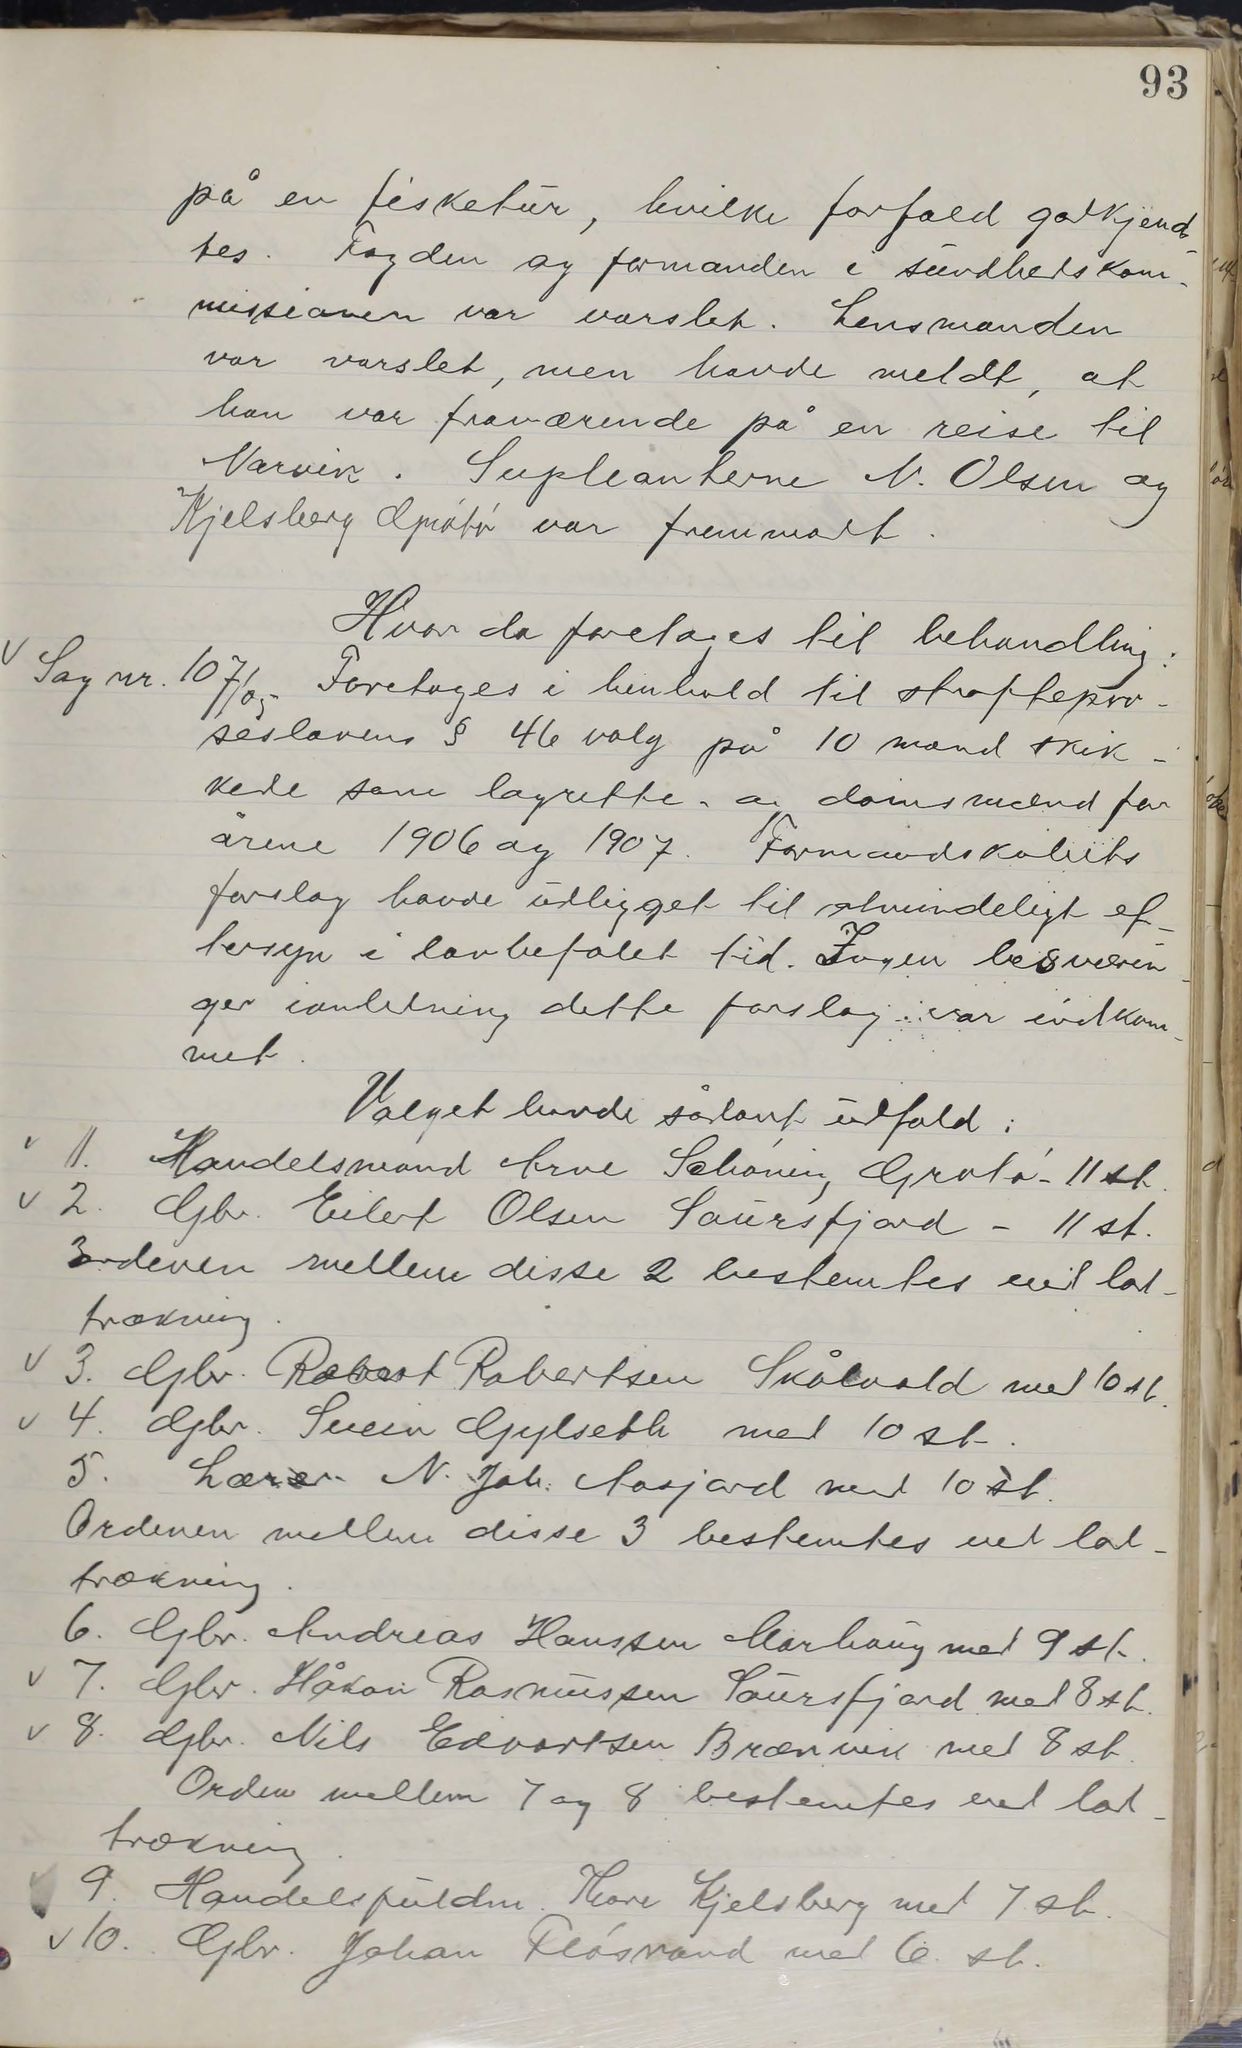 93
på en fisketur, hvilke forfald godkjend-
tes. Fogden og formanden i sundhedskom-
missionen var varslet. Lensmanden
var varslet, men havde meldt, at
han var fraværende på en reise til
Narvik. Supleanterne N. Olsen og
Kjelsberg Grøtø var fremmødt.
Hvor da foretoges til behandling:
v Sag nr. 107/05 Foretoges i henhold til straffepro-
seslovens § 46 valg på 10 mænd skik-
kede som lagrette- og domsmænd for
årene 1906 og 1907. Formandskabets
forslag havde udligget til almindeligt ef-
tersyn i lovbefalet tid. Ingen besværin-
ger ianledning dette forslag var indkom-
met.
Valget havde sådant udfald:
v 1. Handelsmand Arne Schøning Grøtø - 11 st.
v 2. Gbr. Eilert Olsen Saursfjord - 11 st.
Ordenen mellem disse 2 bestemtes ved lod-
trækning.
v 3. Gbr. Robert Robertsen Skålvold med 10 st.
v 4. Gbr. Svein Gylseth med 10 st.
5. Lærer N. Joh. Aasjord med 10 st.
Ordenen mellem disse 3 bestemtes ved lod-
trækning.
6. Gbr. Andreas Hanssen Marhaug med 9 st.
v 7. Gbr. Håkon Rasmussen Saursfjord med 8 st.
v 8. Gbr. Nils Edvartsen Brænvik med 8 st.
Orden mellem 7 og 8 bestemtes ved lod-
trækning.
v 9. Handelsfuldm. Thore Kjelsberg med 7 st.
v 10. Gbr. Johan Fløsvand med 6 st.